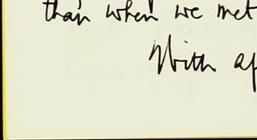 than when we met
With ap